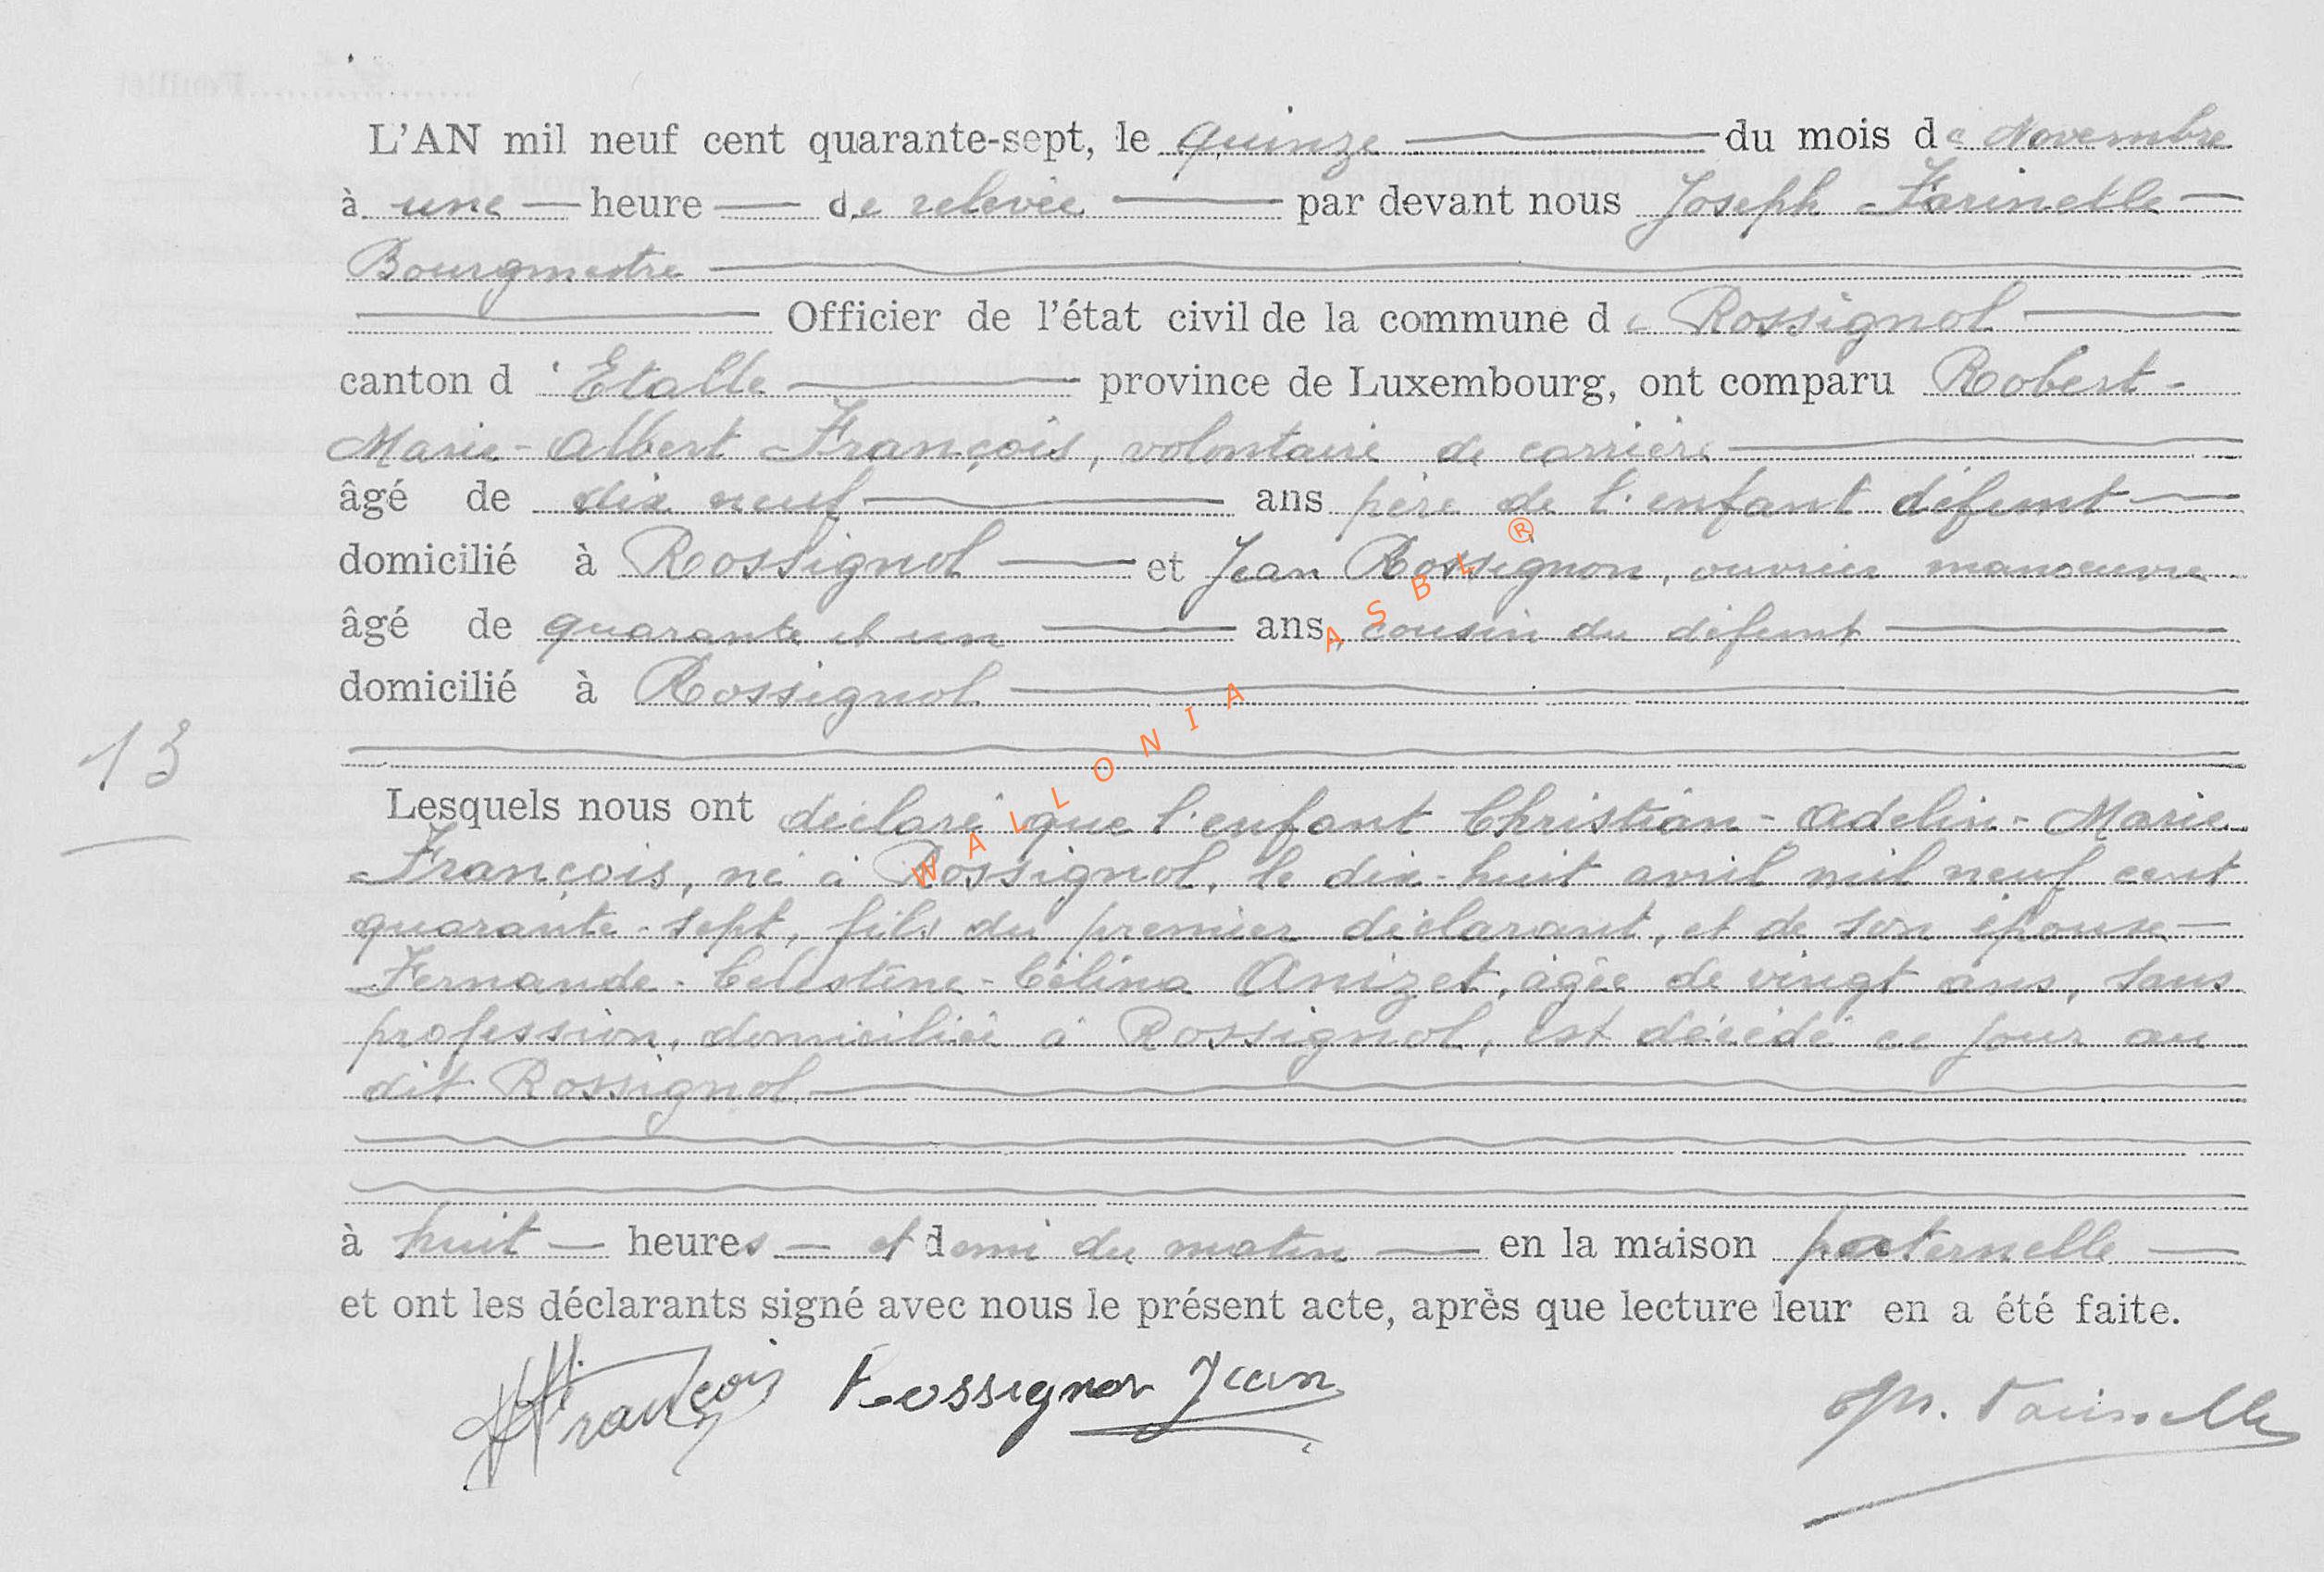 L'AN mil neuf cent quarante-sept, le quinze du mois de Novembre
à une heure de relevée par devant nous Joseph Farinelle
Bourgmestre
Officier de l'état civil de la commune de Rossignol
canton d'Etalle province de Luxembourg, ont comparu Robert-
Marie-Albert François, volontaire de carrière
âgé de dix neuf ans père de l'enfant défunt
domicilié à Rossignol et Jean Rossignon, ouvrier manoeuvre
âgé de quarante et un ans, cousin du défunt
domicilié à Rossignol
13
Lesquels nous ont déclaré que l'enfant Christian-Adelin-Marie
François, né à Rossignol, le dix-huit avril mil neuf cent
quarante-sept, fils du premier déclarant, et de son épouse
Fernande-Célestine-Célina Anizet, âgée de vingt ans, sans
profession, domiciliée à Rossignol, est décédé ce jour au
dit Rossignol
à huit heures et demi du matin en la maison paternelle
et ont les déclarants signé avec nous le présent acte, après que lecture leur en a été faite.
François Rossignon Jean Farinelle
WALLONIA ASBL ®